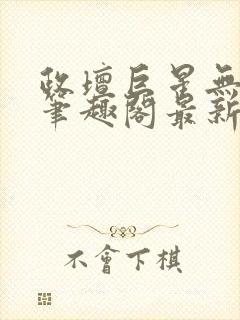 政壇巨星無
筆趣閣最新
不會下棋